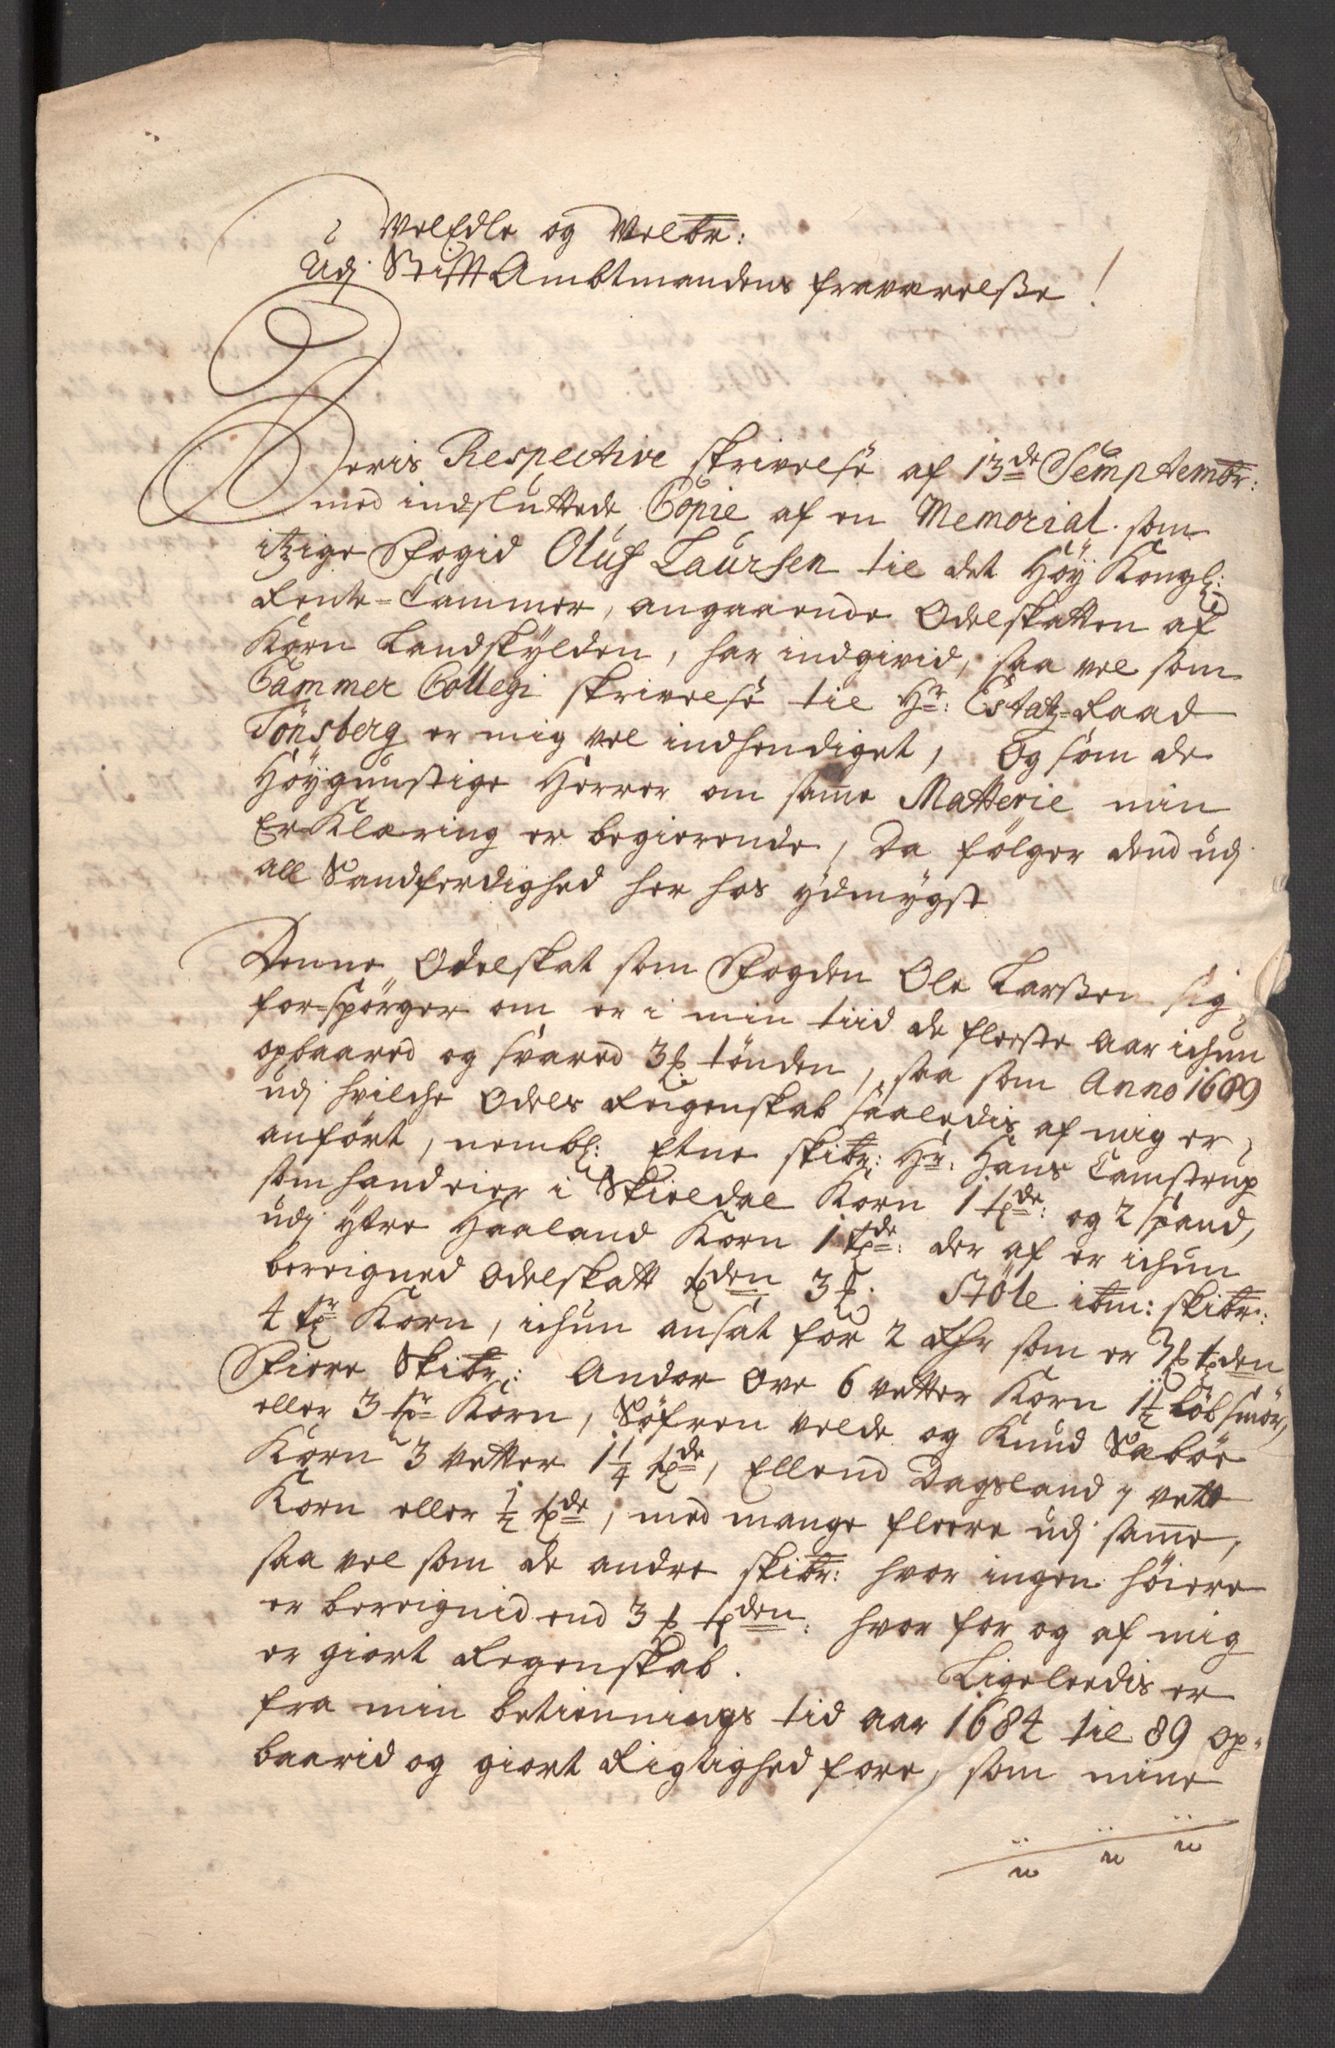 VelEdle og Velbr:
Udj StifftAmbtmandens fraværelsse!
Deris Respective skrivelse af 13de Semptembr:
med indsluttede Copie af en Memorial som
itzige Fogid Oluf Laursen til det Höy Kongl:
Rente-Cammer, angaaende Odelskatten af
Korn Landskÿlden, har indgivid, saa vel som
Cammer Collegi skrivelse til Hr: Estatz-Raad
Tönsberg er mig vel indhendiget, Og som de
Höÿgunstige Herrer om samme Matterie min
Er-Klæring er begierende, Da fölger dend udj
all Sandferdighed her hos ÿdmÿgst
Denne Odelskat som Fogden Ole Larssen sig
for-spörger om er i min tiid de fleeste Aar ichun
opbaared og svared 3 tönden, saa som Anno 1689
udj hvilche Odels Regenskab saaledis af mig er
anfört, nembl: Etne skibr: Hr: Hans Camstrup
som hand eier i Skieldal Korn 1 tde: og 2 spand,
udj ÿtre Haaland Korn 1 tde: der af er ichun
bereigned Odelskatt tden 3 Stöle itm: skibr:
4 tr Korn, ichun ansat for 2 som er tden
Fiere Skibr: Andor Ove 6 vetter Korn 1½ Löb smör,
eller 3 Korn, Söfren velde og Knud Sæböe
Korn 3 vetter 1¼ tde, Ellend Dagsland 7 vett
Korn eller ½ tde, med mange fleere udj samme,
saa vel som de andre skibr: hvor ingen höiere
er bereignid end 3 tden: hvor for og af mig
er giort Regenskab. Ligeleedis er
fra min betiennings tid aar 1684 til 89 op-
baarid og giort Rigtighed fore, som mine